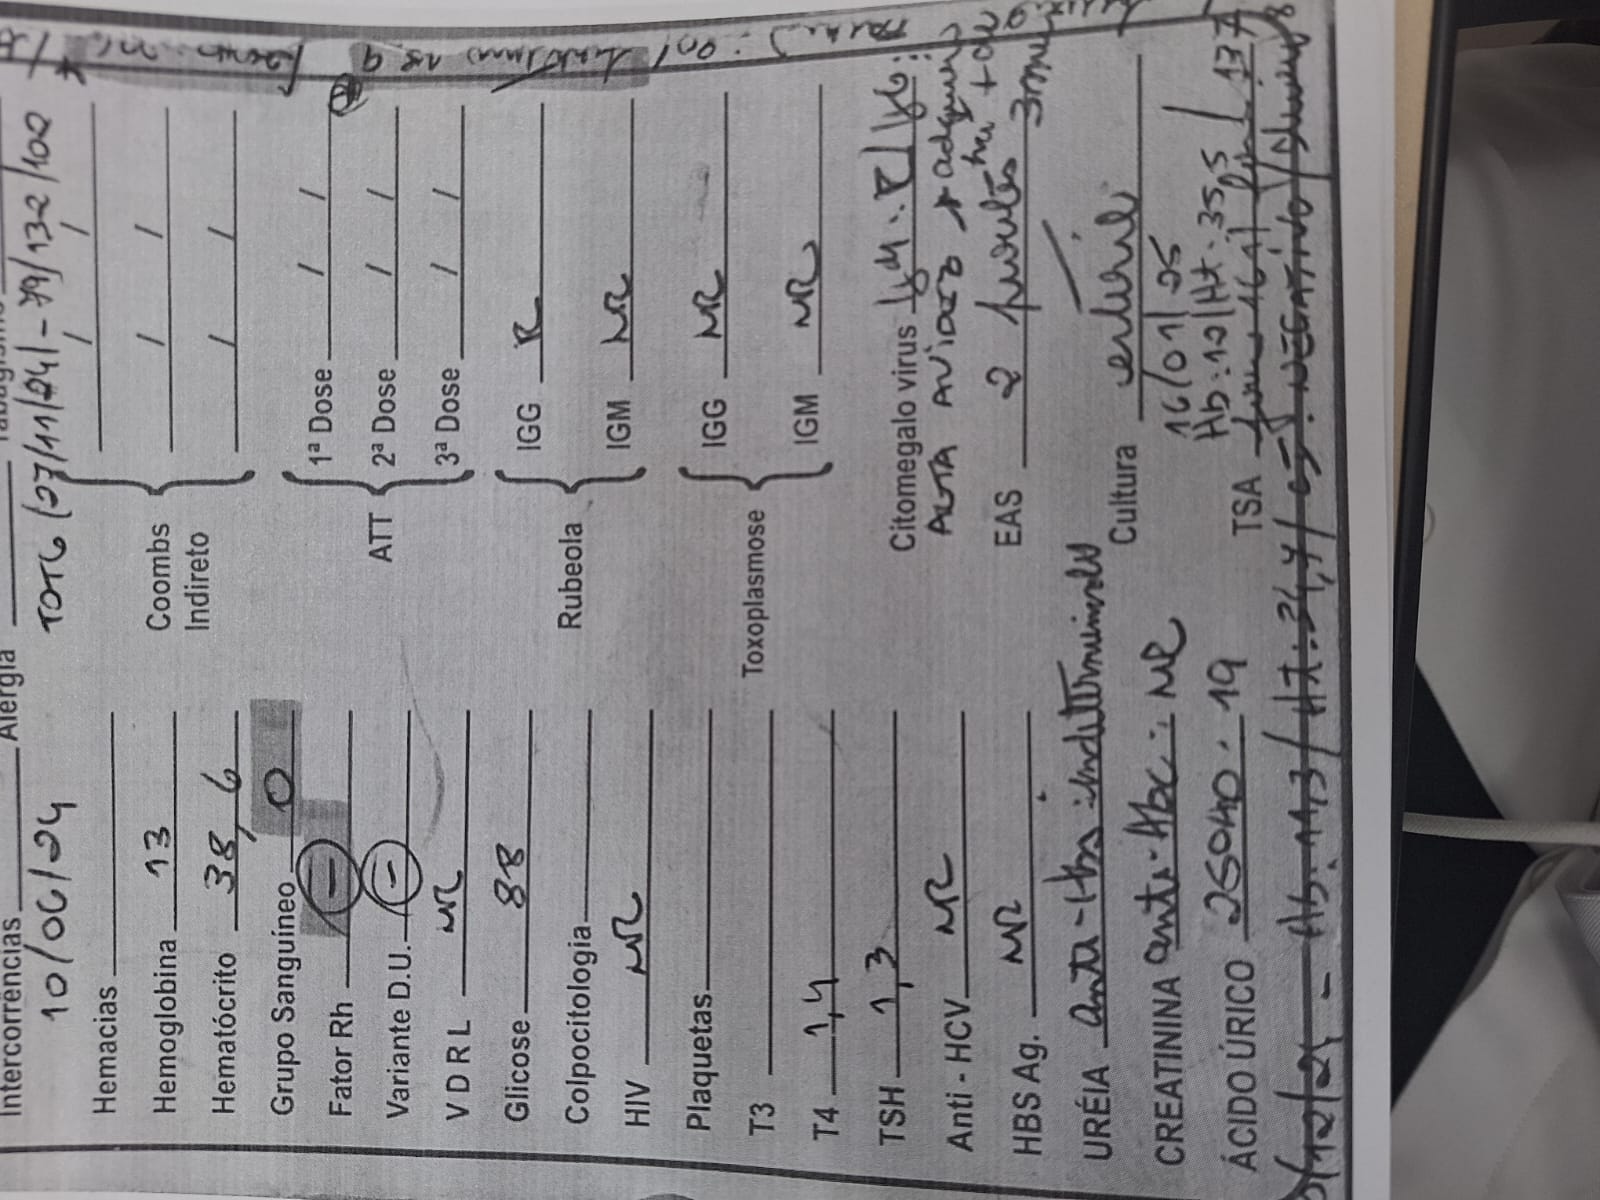 Intercorrências Alergia
10/06/24 TOTG (27/11/24) - 79/132/100
Hemacias
Hemoglobina 13
Hematócrito 38,6
Grupo Sanguíneo O
Fator Rh (-)
Variante D.U. (-)
V D R L NR
Glicose 88
Colpocitologia
HIV NR
Plaquetas
T3
T4 1,4
TSH 1,3
Anti - HCV NR
HBS Ag. NR
URÉIA anti-Hbs: indeterminado
CREATININA anti-Hbc: NR
ÁCIDO ÚRICO 25OHD: 19
Coombs
Indireto
/ /
/ /
/ /
ATT
1ª Dose / /
2ª Dose / /
3ª Dose / /
Rubeola
IGG R
IGM NR
Toxoplasmose
IGG NR
IGM NR
Citomegalo virus IgM: R / IgG:
ALTA AVIDEZ
EAS 2
Cultura
16/01/25
Hb: 10 / Ht: 35,5
TSA
/12/24 - Hb: 11,3 / HT: 34,4 / CI: NEGATIVO